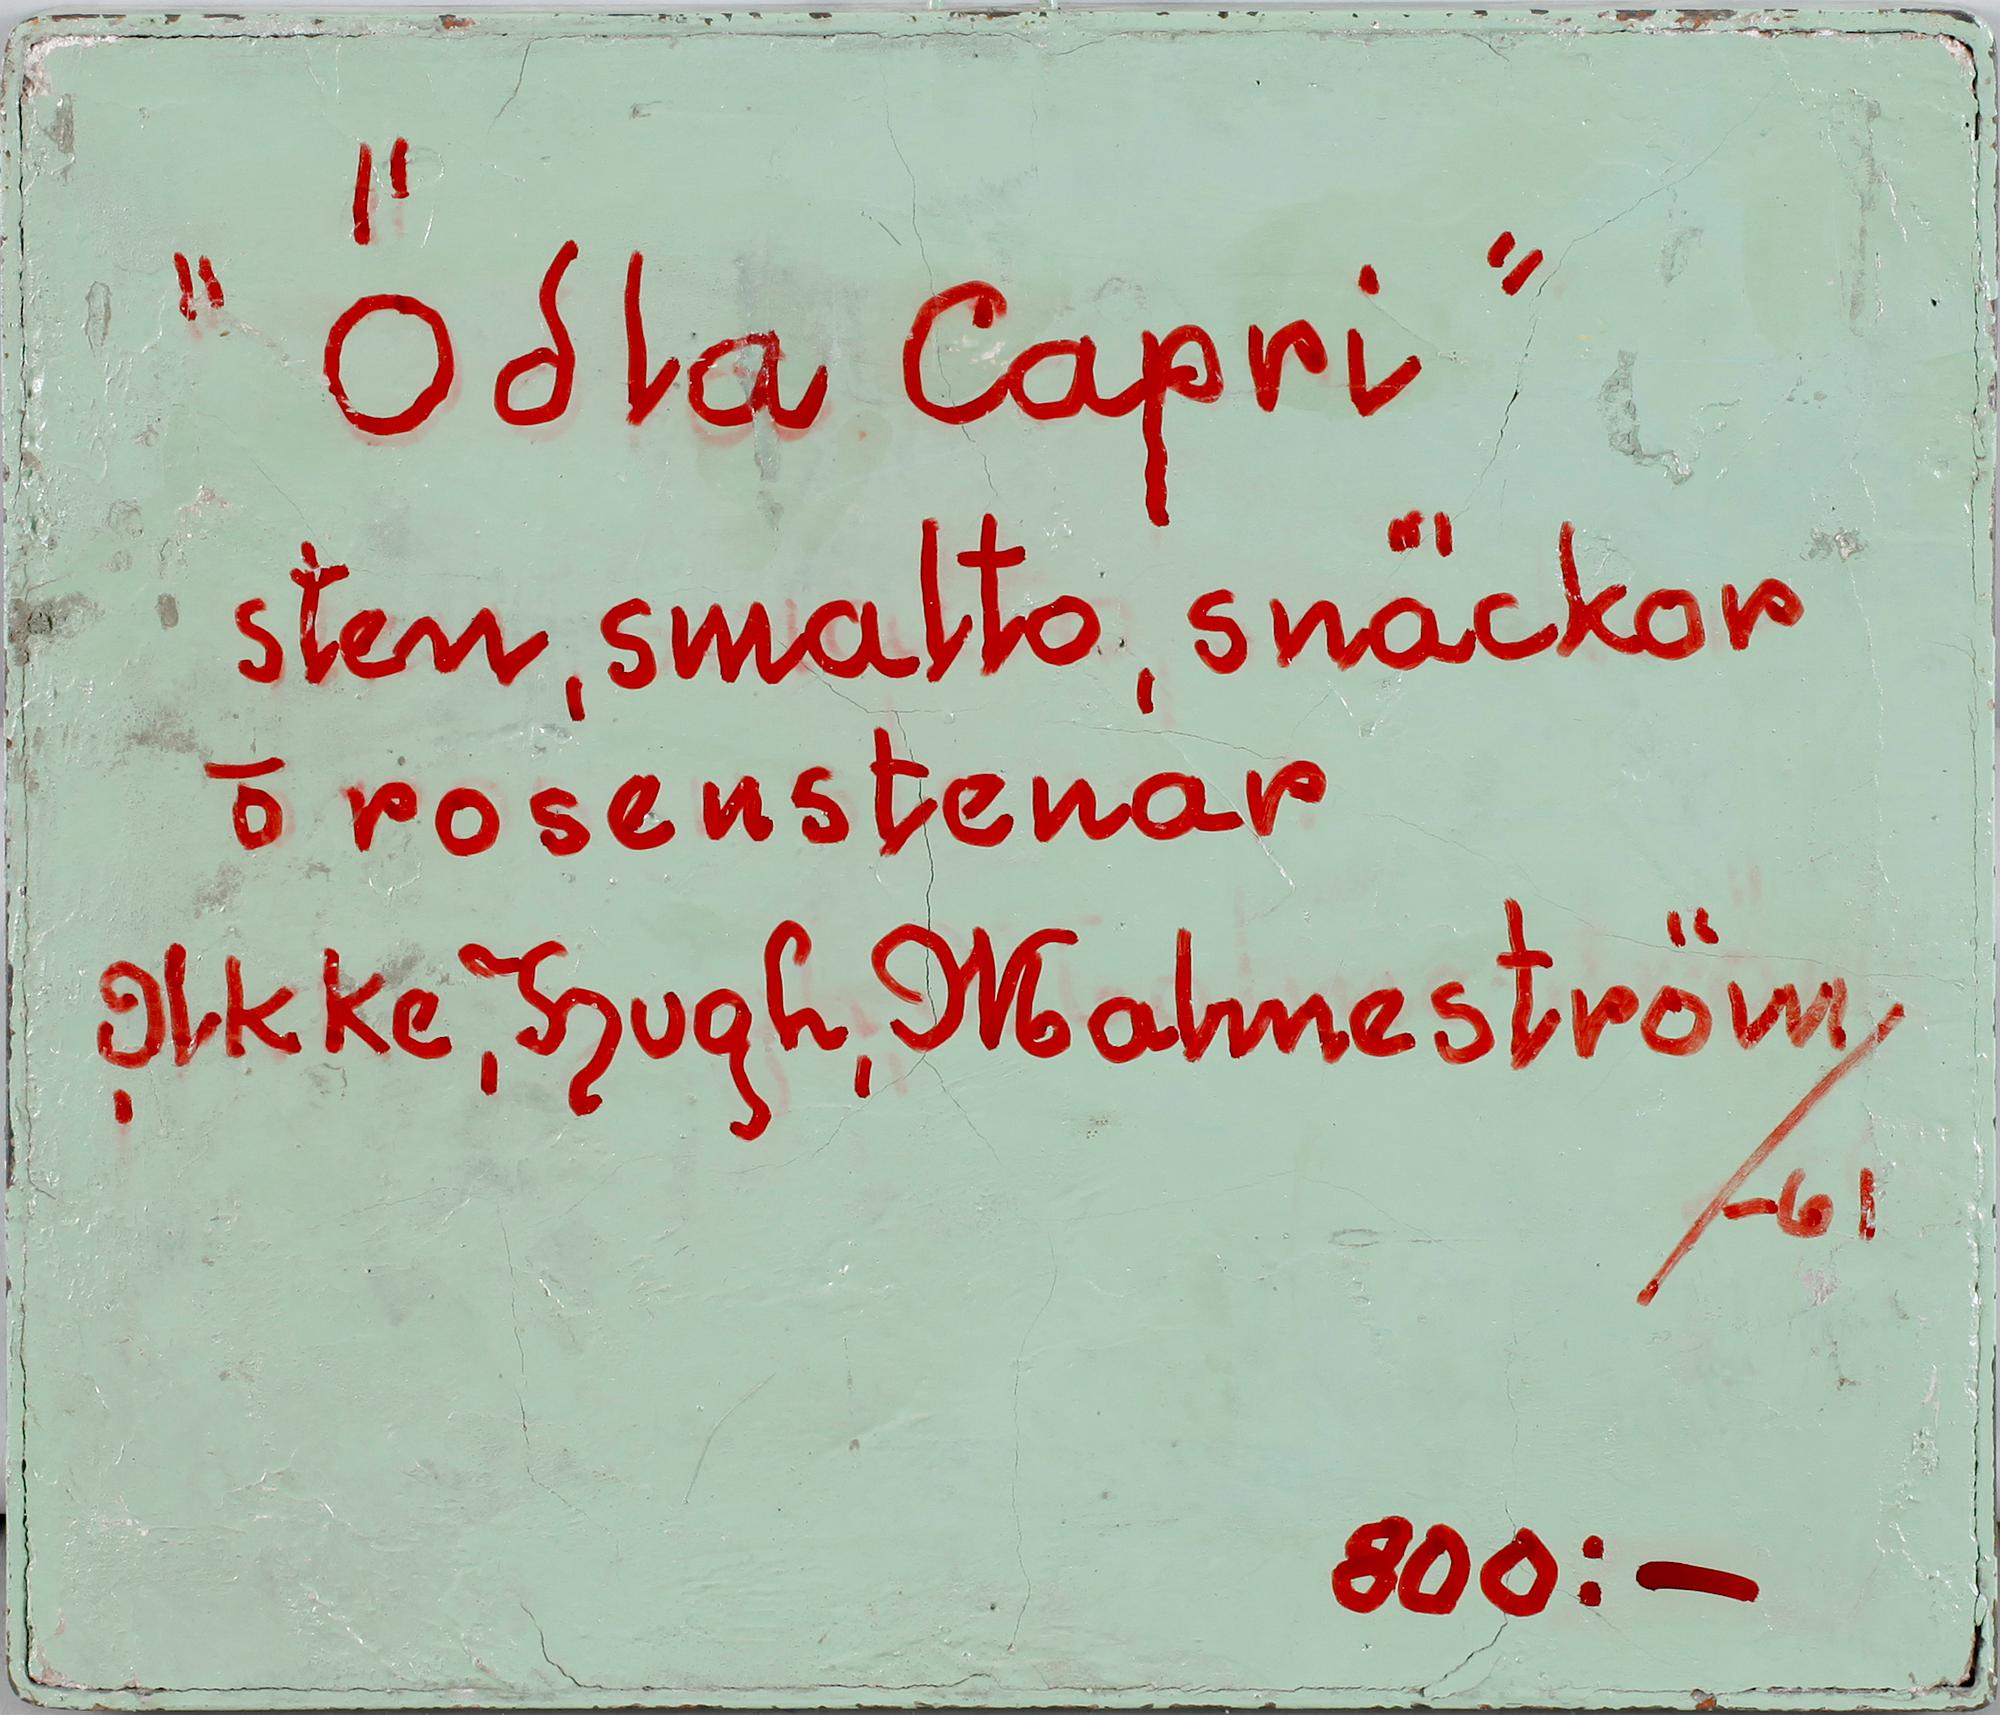 "Ödla Capri"
sten, smalto, snäckor
ō rosenstenar
Akke, Hugh, Malmeström
-61
800:-